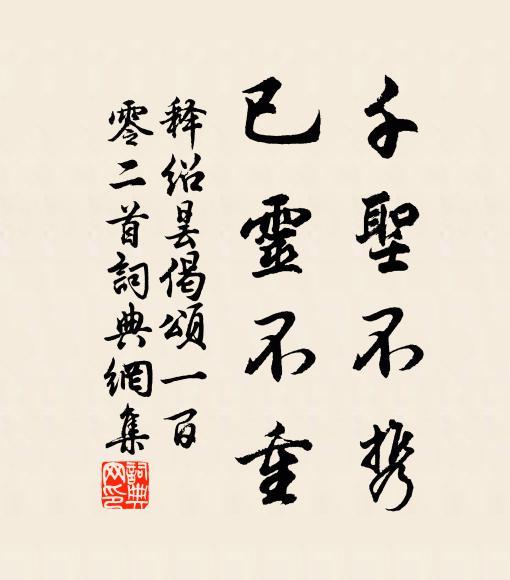 千聖不携
已靈不重
释绍昙偈頌一百
零二首詞典網集
詞典网印